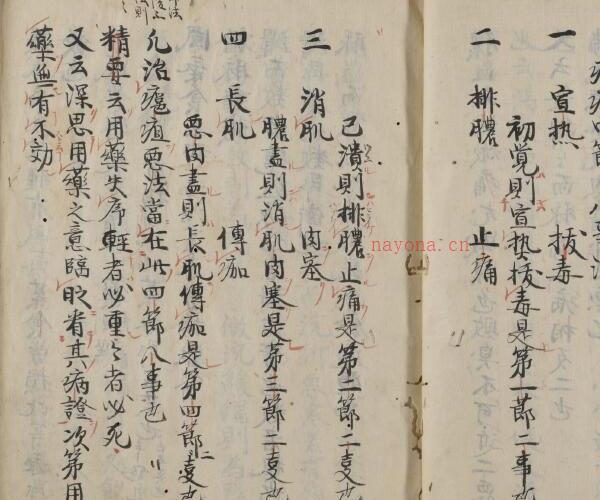 一 宣热 拔毒
初覚則宣热拔毒是第一節二事也
二 排膿 止痛
已潰則排膿止痛是第二節二㕝也
三 消肌 肉塞
膿盡則消肌肉塞是第三節二㕝也
四 長肌 傅痂
悪肉盡則長肌傅痂是第四節二㕝也
凢治癰疽悪法當在此四節八事也
精要云用藥失序軽者必重々者必死
又云深思用藥之意臨眂看其病證次第用
藥無有不効
nayona.cn